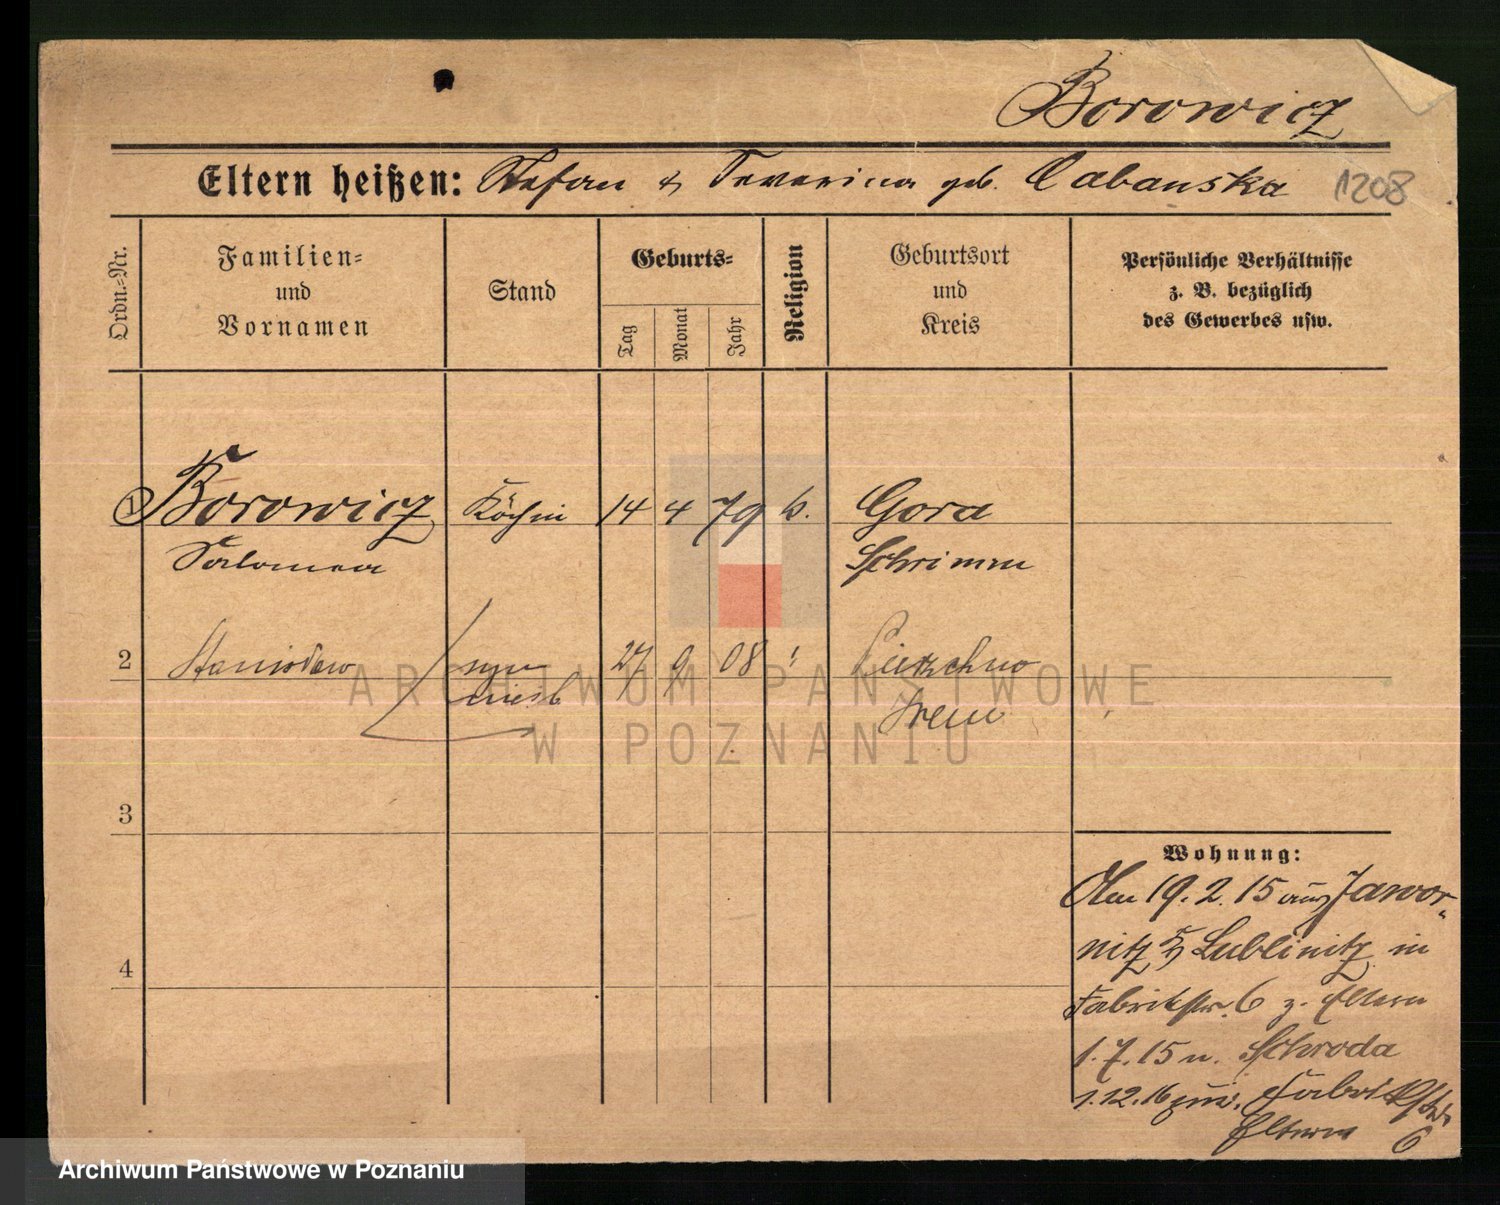 Borowicz
Eltern heißen: Stefan & Severina geb. Cabanska 1208
Ordn.-Nr.
Familien-
und
Vornamen
Stand
Geburts-
Tag
Monat
Jahr
Religion
Geburtsort
und
Kreis
Persönliche Verhältnisse
z. B. bezüglich
des Gewerbes usw.
1 Borowicz Köchin 14 4 79 k. Gora
Salomea Schrimm
2 Stanislaw 27 9 08
3
4
Wohnung:
Am 19.2.15 aus Jawor-
nitz Lublinitz in
Fabrikstr. 6 z. Eltern
1.7.15 n. Schroda
1.12.16 zur. Fabrikstr.
Eltern 6
ARCHIWUM PAŃSTWOWE
W POZNANIU
Archiwum Państwowe w Poznaniu